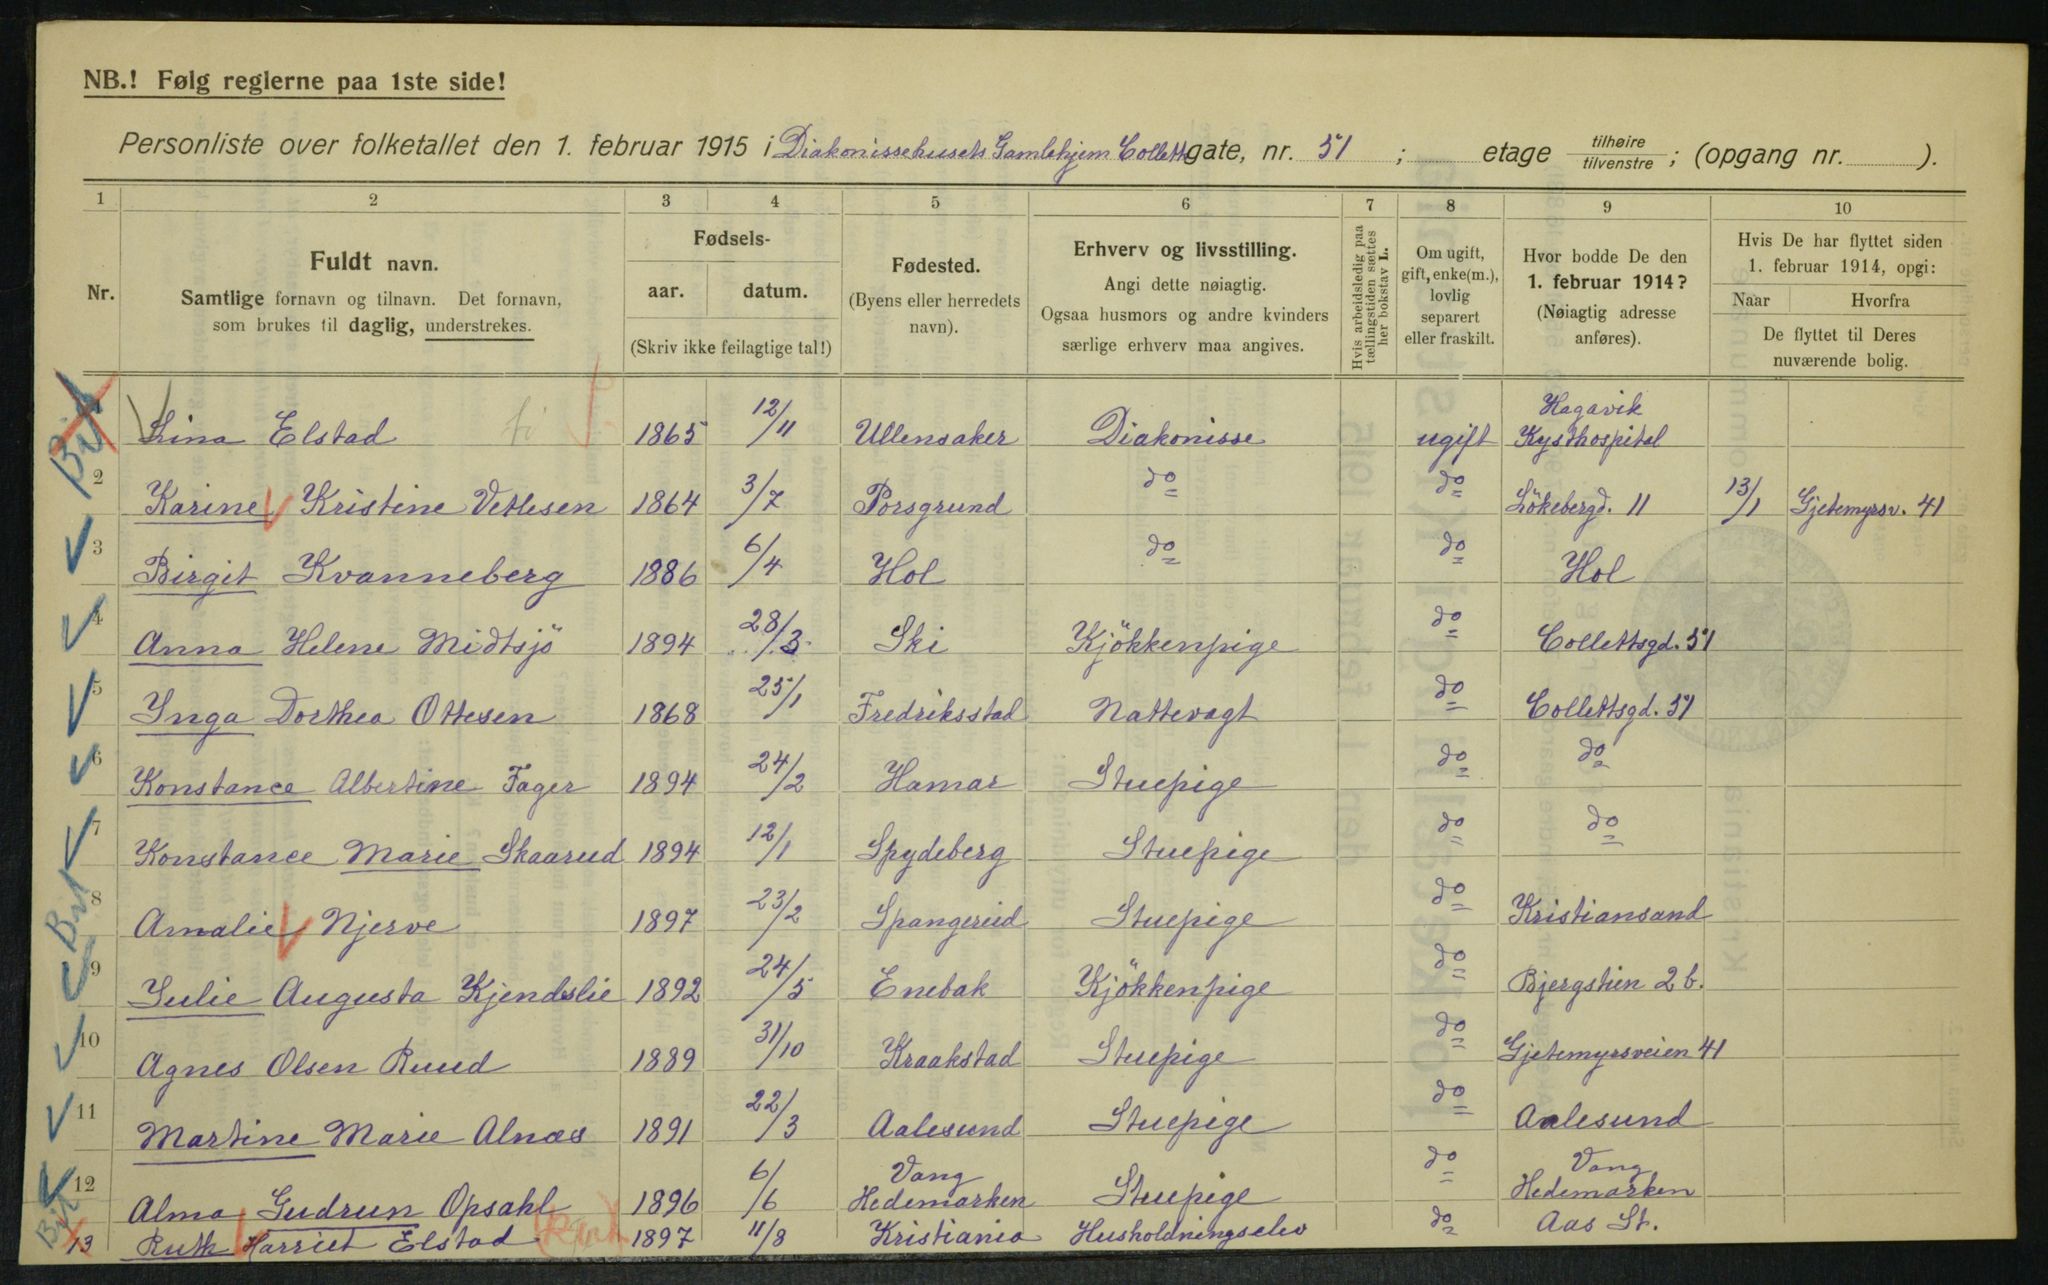 NB.! Følg reglerne paa 1ste side!
Personliste over folketallet den 1. februar 1915 i Diakonissehusets Gamlehjem Colletts gate, nr. 51 ; etage tilhøire / tilvenstre ; (opgang nr. ).
1 2 3 4 5 6 7 8 9 10
Nr.
Fuldt navn.
Samtlige fornavn og tilnavn. Det fornavn,
som brukes til daglig, understrekes.
Fødsels-
aar. datum.
(Skriv ikke feilagtige tal!)
Fødested.
(Byens eller herredets
navn).
Erhverv og livsstilling.
Angi dette nøiagtig.
Ogsaa husmors og andre kvinders
særlige erhverv maa angives.
Hvis arbeidsledig paa
tællingstiden sættes
her bokstav L.
Om ugift,
gift, enke(m.),
lovlig
separert
eller fraskilt.
Hvor bodde De den
1. februar 1914?
(Nøiagtig adresse
anføres).
Hvis De har flyttet siden
1. februar 1914, opgi:
Naar Hvorfra
De flyttet til Deres
nuværende bolig.
Lina Elstad 1865 12/11 Ullensaker Diakonisse ugift Hagavik Kysthospital
2 Karine Kristine Vetlesen 1864 3/7 Porsgrund do do Lökebergd. 11 13/1 Gjetemyrsv. 41
3 Birgit Kvanneberg 1886 6/4 Hol do do Hol
4 Anna Helene Midtsjö 1894 28/3 Ski Kjökkenpige do Collettsgd. 51
5 Inga Dorthea Ottesen 1868 25/1 Fredriksstad Nattevagt do Collettsgd. 51
6 Konstance Albertine Fager 1894 24/2 Hamar Stuepige do do
7 Konstance Marie Skaarud 1894 12/1 Spydeberg Stuepige do do
8 Amalie Njerve 1897 23/2 Spangereid Stuepige do Kristiansand
9 Julie Augusta Kjendslie 1892 24/5 Enebak Kjökkenpige do Bjergstien 2 b.
10 Agnes Olsen Ruud 1889 31/10 Kraakstad Stuepige do Gjetemyrsveien 41
11 Martine Marie Alnæs 1891 22/3 Aalesund Stuepige do Aalesund
12 Alma Gudrun Opsahl 1896 6/6 Vang Hedemarken Stuepige do Vang Hedemarken
13 Ruth Harriet Elstad 1897 11/8 Kristiania Husholdningselev do Aas St.